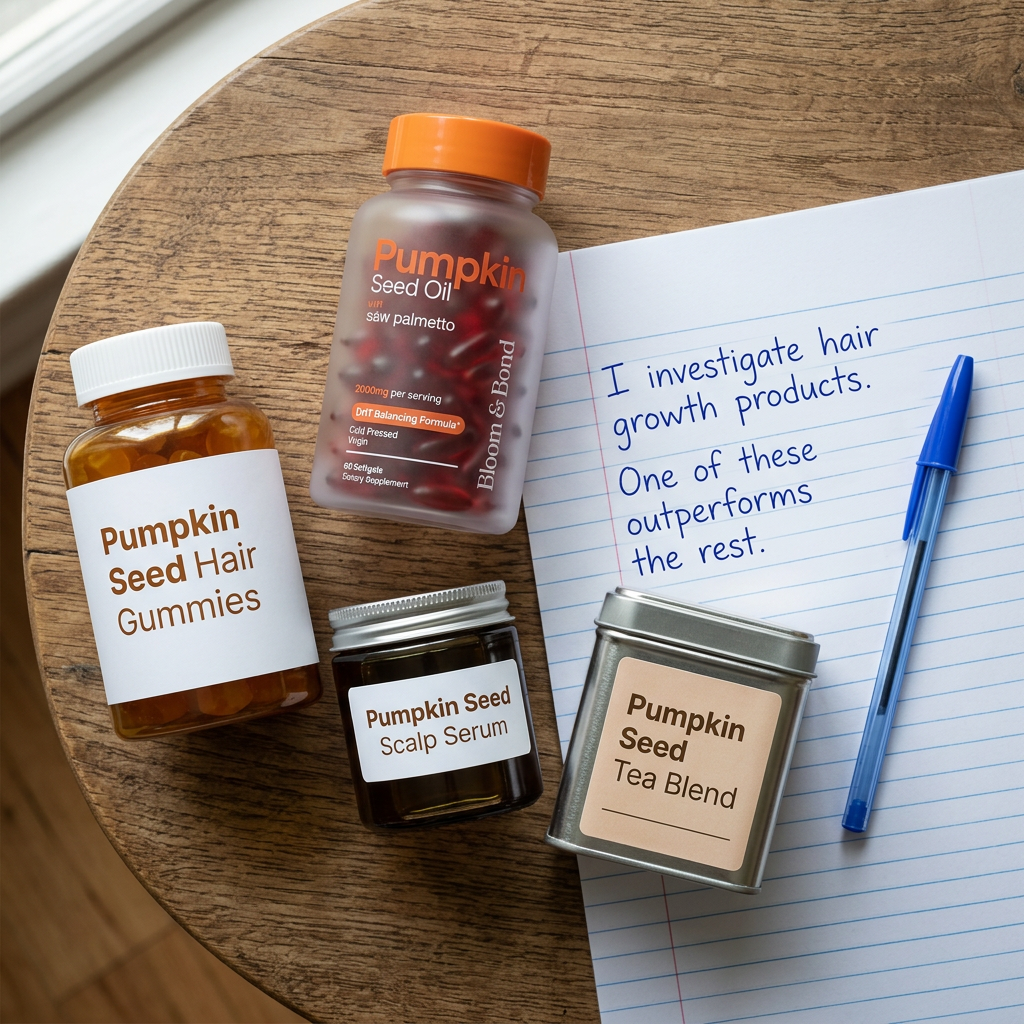 Pumpkin
Seed Oil
saw palmetto
2000mg per serving
DHT Balancing Formula*
Cold Pressed
Virgin
60 Softgels
Dietary Supplement
Bloom & Bond
I investigate hair
growth products.
One of these
outperforms
the rest.
Pumpkin
Seed Hair
Gummies
Pumpkin Seed
Scalp Serum
Pumpkin
Seed
Tea Blend